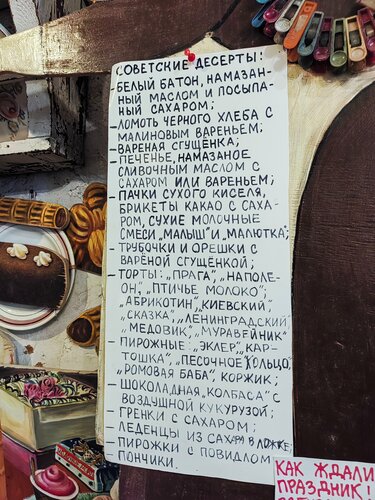 СОВЕТСКИЕ ДЕСЕРТЫ:
-БЕЛЫЙ БАТОН, НАМАЗАН-
НЫЙ МАСЛОМ И ПОСЫПА-
НЫЙ САХАРОМ;
-ЛОМОТЬ ЧЕРНОГО ХЛЕБА С
МАЛИНОВЫМ ВАРЕНЬЕМ;
-ВАРЕНАЯ СГУЩЁНКА;
-ПЕЧЕНЬЕ, НАМАЗАНОЕ
СЛИВОЧНЫМ МАСЛОМ С
САХАРОМ ИЛИ ВАРЕНЬЕМ;
-ПАЧКИ СУХОГО КИСЕЛЯ,
БРИКЕТЫ КАКАО С САХА-
РОМ, СУХИЕ МОЛОЧНЫЕ
СМЕСИ „МАЛЫШ" И „МАЛЮТКА";
-ТРУБОЧКИ И ОРЕШКИ С
ВАРЁНОЙ СГУЩЕНКОЙ;
-ТОРТЫ: „ПРАГА", „НАПОЛЕ-
ОН", „ПТИЧЬЕ МОЛОКО";
„АБРИКОТИН", „КИЕВСКИЙ",
„СКАЗКА", „ЛЕНИНГРАДСКИЙ",
„МЕДОВИК", „МУРАВЕЙНИК"
- ПИРОЖНЫЕ: „ЭКЛЕР", „КАР-
ТОШКА", „ПЕСОЧНОЕ КОЛЬЦО",
„РОМОВАЯ БАБА", КОРЖИК;
- ШОКОЛАДНАЯ „КОЛБАСА" С
ВОЗДУШНОЙ КУКУРУЗОЙ;
- ГРЕНКИ С САХАРОМ;
- ЛЕДЕНЦЫ ИЗ САХАРА В ЛОЖКЕ;
- ПИРОЖКИ С ПОВИДЛОМ
- ПОНЧИКИ.
КАК ЖДАЛИ
ПРАЗДНИК!